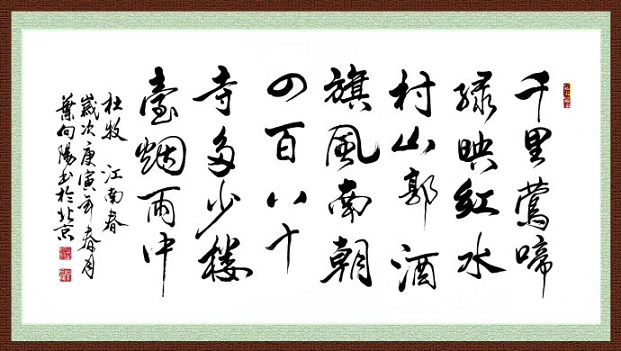 千里鶯啼
绿映紅水
村山郭酒
旗風南朝
四百八十
寺多少楼
臺烟雨中
杜牧 江南春
歲次庚寅年春月
葉向陽书於北京